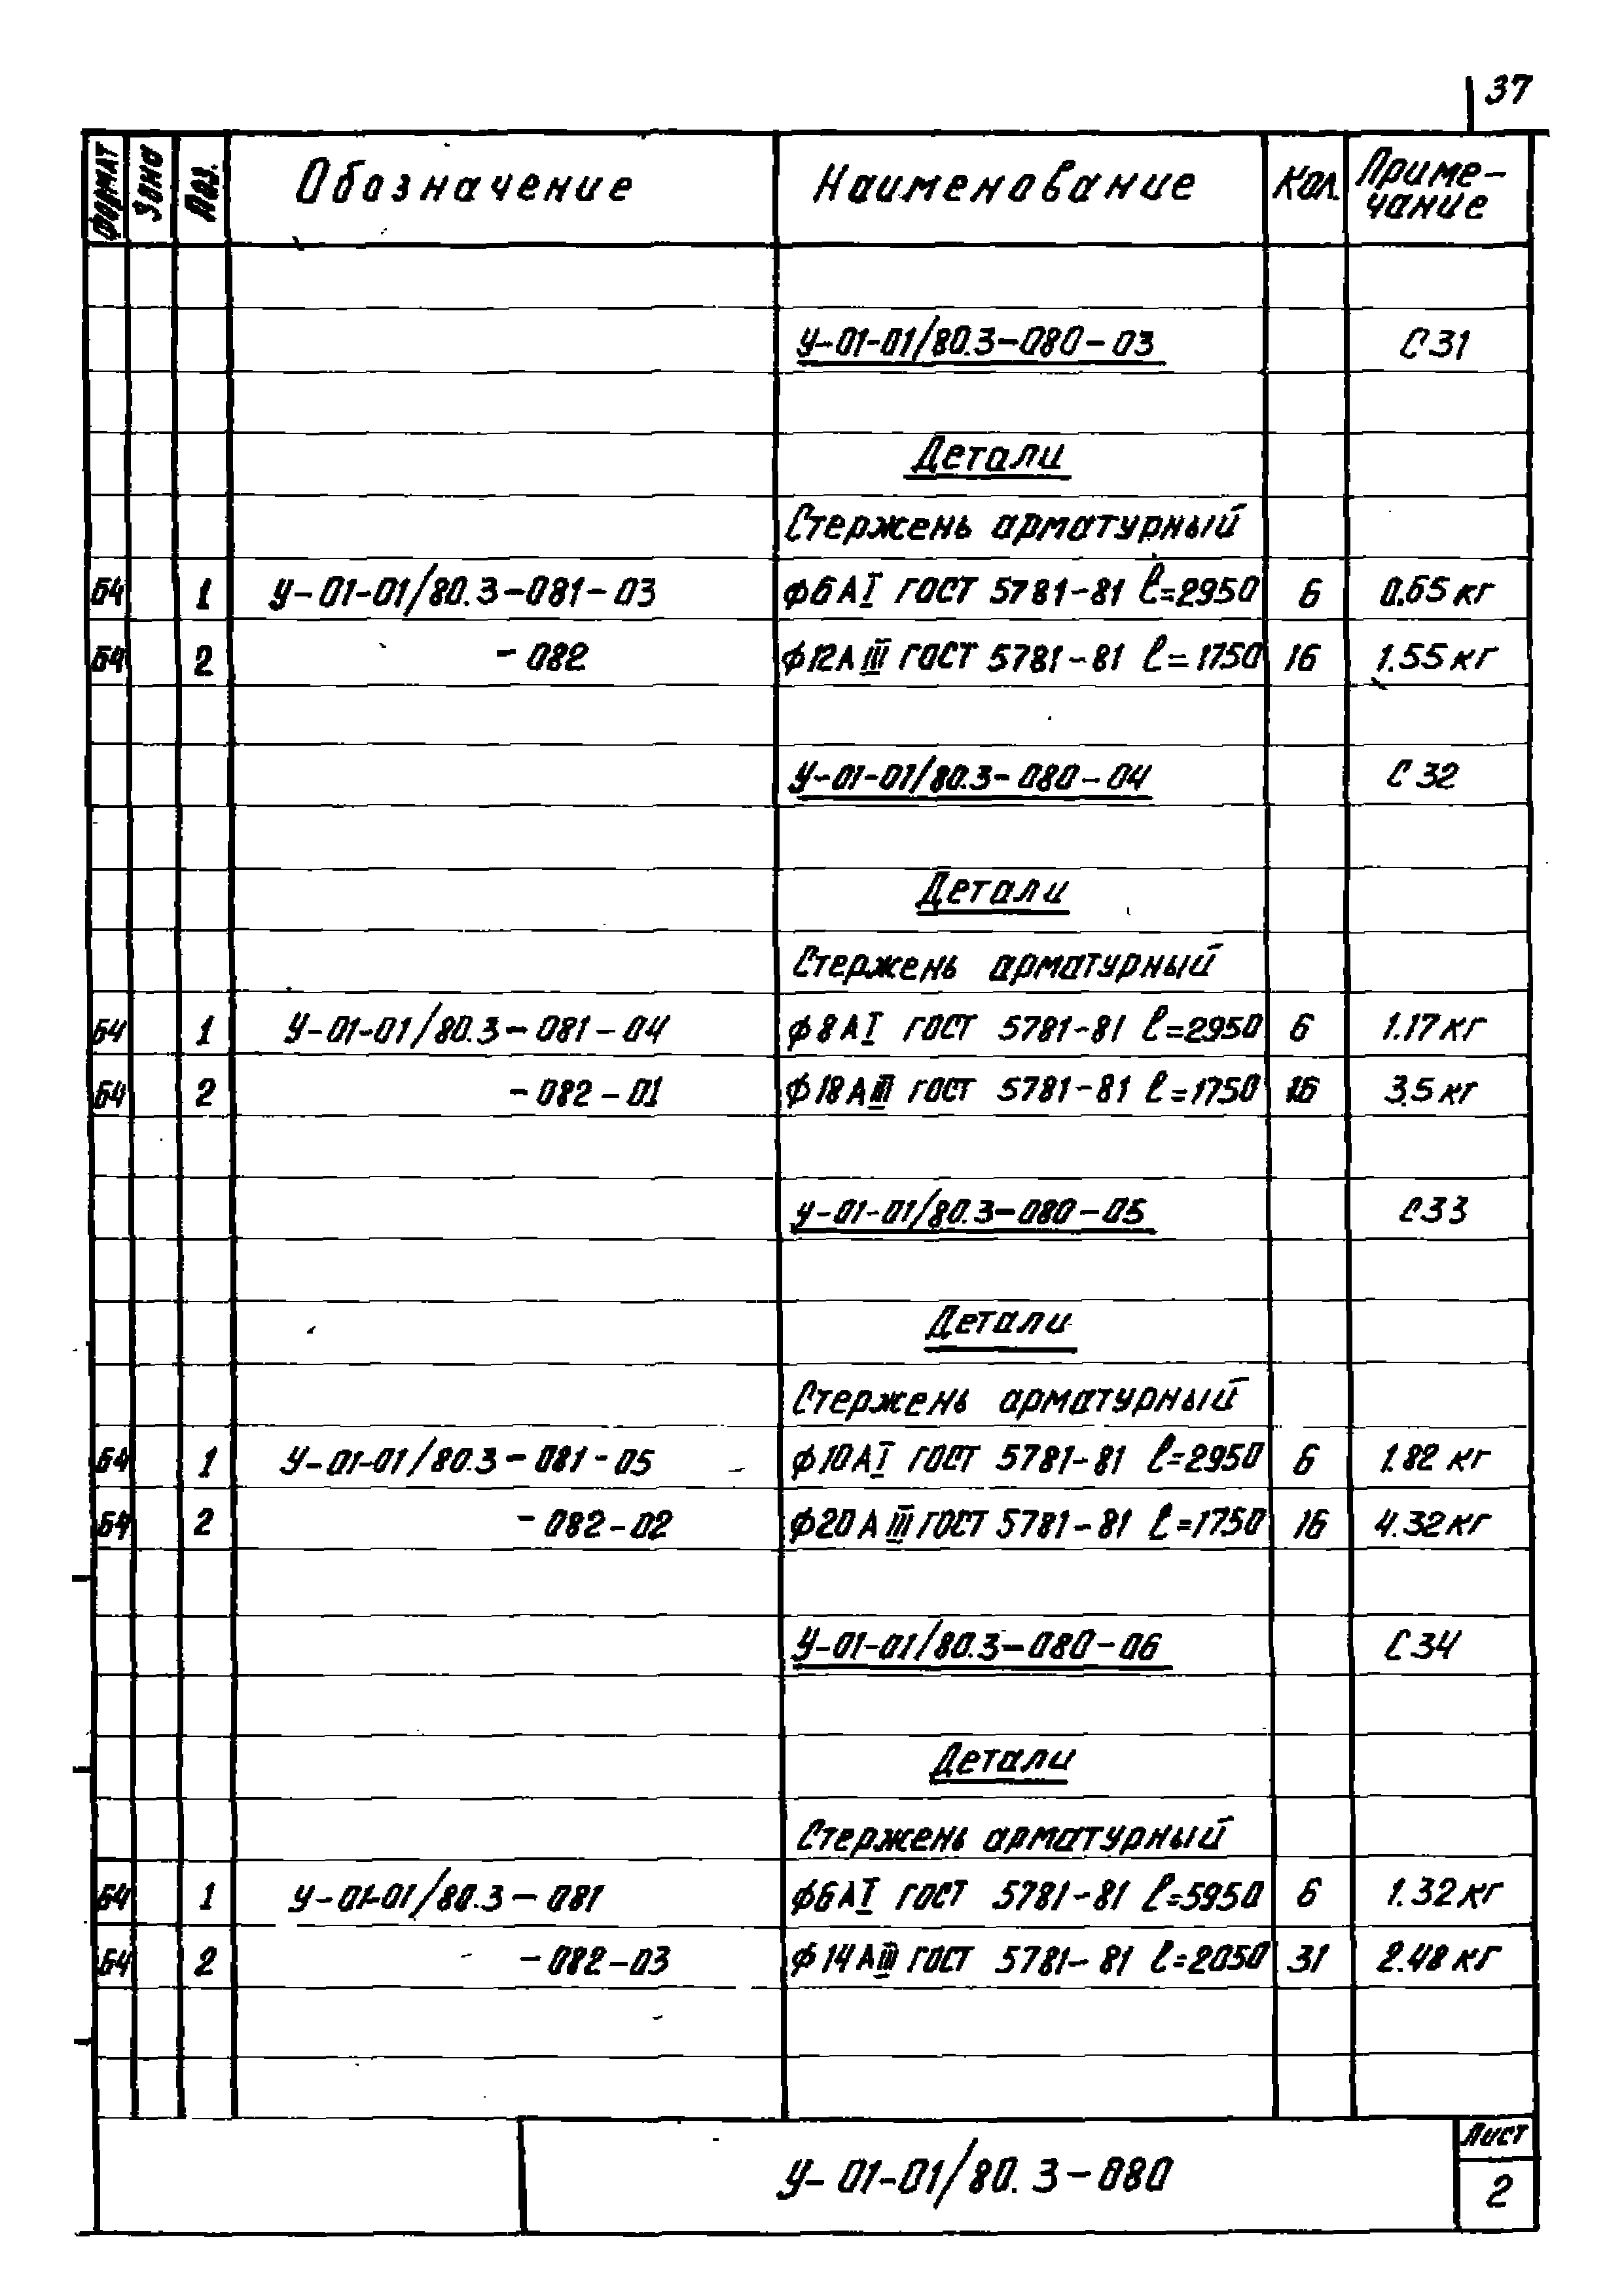 37
Формат Зона Поз. Обозначение Наименование Кол. Приме-
чание
У-01-01/80.3-080-03 С31
Детали
Стержень арматурный
Б4 1 У-01-01/80.3-081-03 ф6АI ГОСТ 5781-81 ℓ=2950 6 0.65кг
Б4 2 -082 ф12АIII ГОСТ 5781-81 ℓ=1750 16 1.55кг
У-01-01/80.3-080-04 С32
Детали
Стержень арматурный
Б4 1 У-01-01/80.3-081-04 ф8АI ГОСТ 5781-81 ℓ=2950 6 1.17кг
Б4 2 -082-01 ф18АIII ГОСТ 5781-81 ℓ=1750 16 3.5кг
У-01-01/80.3-080-05 С33
Детали
Стержень арматурный
Б4 1 У-01-01/80.3-081-05 ф10АI ГОСТ 5781-81 ℓ=2950 6 1.82кг
Б4 2 -082-02 ф20АIII ГОСТ 5781-81 ℓ=1750 16 4.32кг
У-01-01/80.3-080-06 С34
Детали
Стержень арматурный
Б4 1 У-01-01/80.3-081 ф6АI ГОСТ 5781-81 ℓ=5950 6 1.32кг
Б4 2 -082-03 ф14АIII ГОСТ 5781-81 ℓ=2050 31 2.48кг
У-01-01/80.3-080
Лист
2